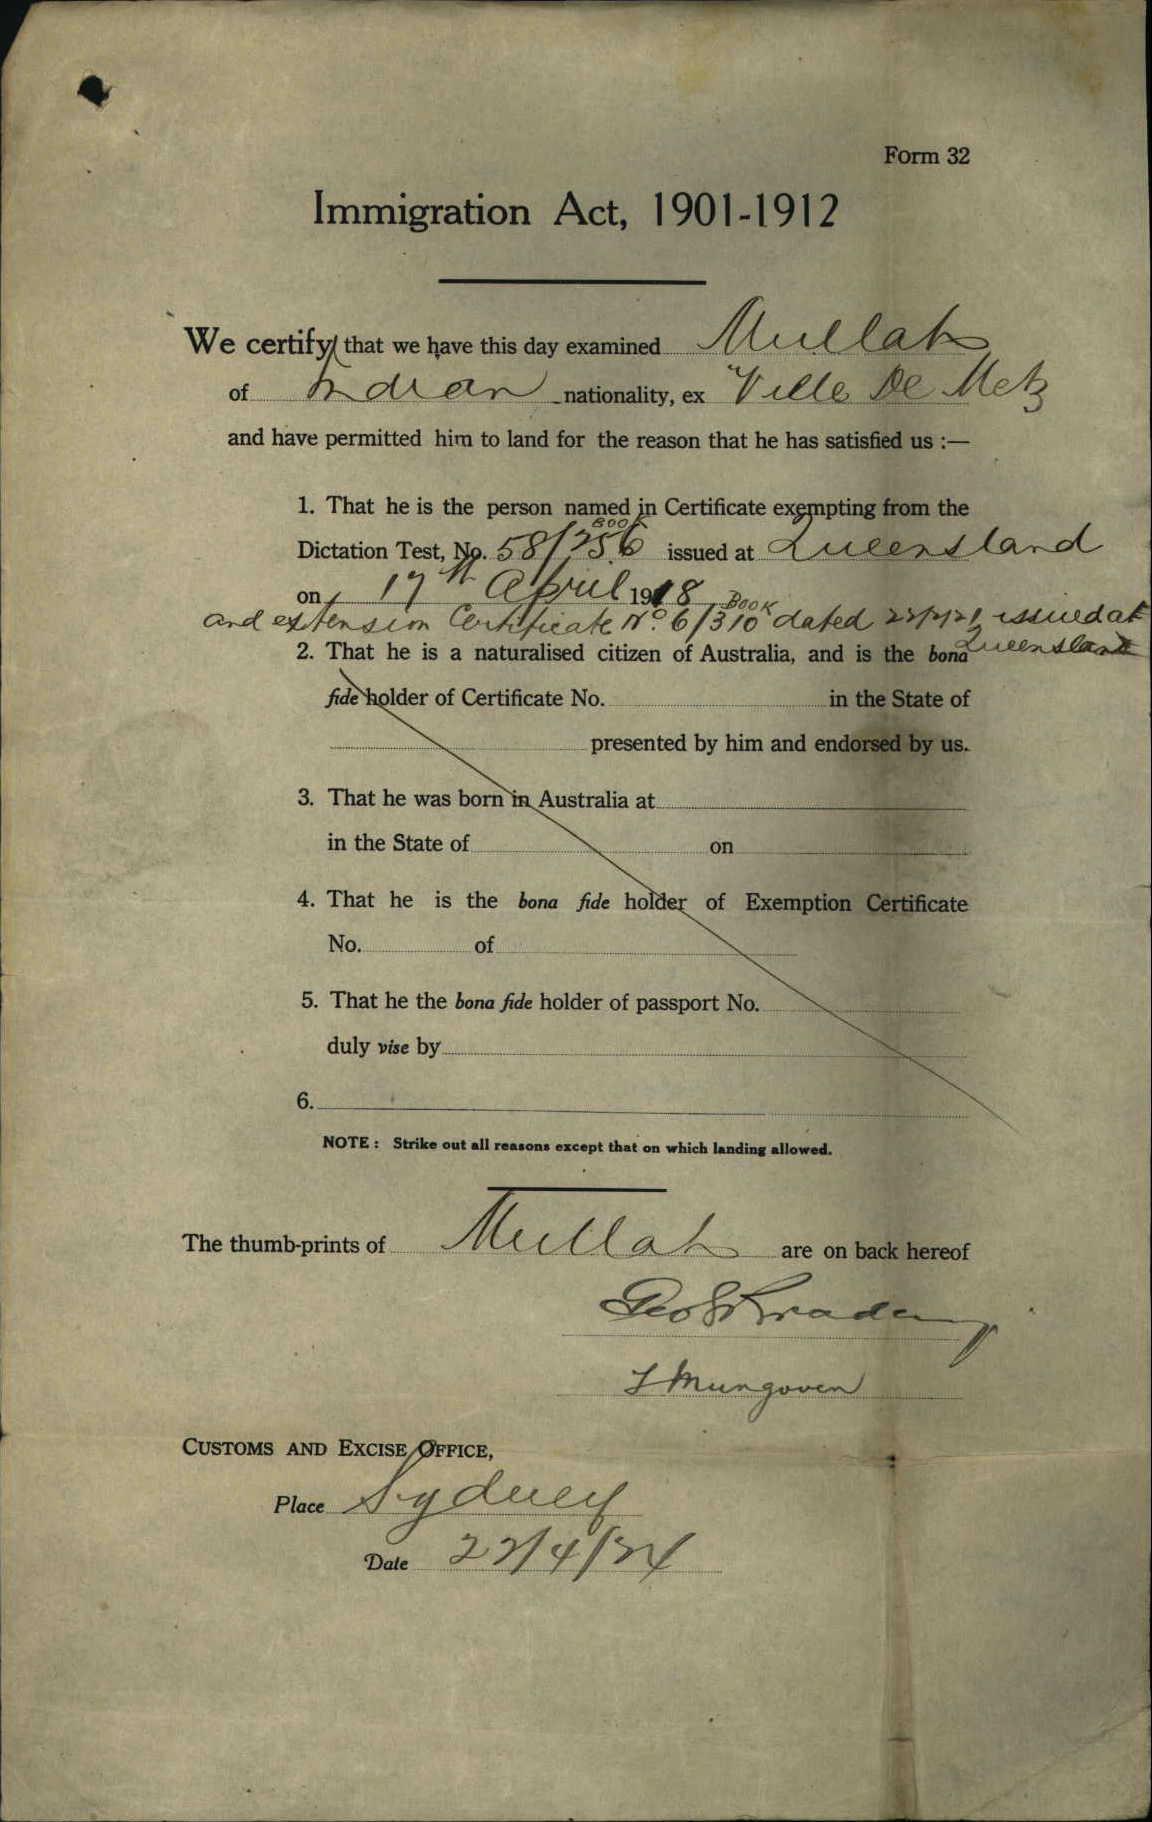 Form 32
Immigration Act, 1901-1912
We certify that we have this day examined Mullah
of Indian nationality, ex "Ville De Metz
and have permitted him to land for the reason that he has satisfied us :—
1. That he is the person named in Certificate exempting from the
BOOK
Dictation Test, No. 58/256 issued at Queensland
on 17th April 1918
and extension Certificate No. 6/310 BOOK dated issued at
Queensland
2. That he is a naturalised citizen of Australia, and is the bona
fide holder of Certificate No. in the State of
presented by him and endorsed by us.
3. That he was born in Australia at
in the State of on
4. That he is the bona fide holder of Exemption Certificate
No. of
5. That he the bona fide holder of passport No.
duly vise by
6.
NOTE : Strike out all reasons except that on which landing allowed.
The thumb-prints of Mullah are on back hereof
Mungoven
CUSTOMS AND EXCISE OFFICE,
Place Sydney
Date 22/4/24